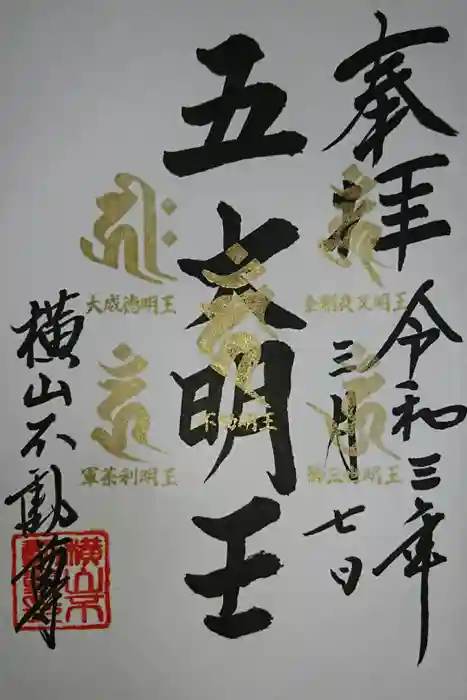 奉拝
令和三年
三月七日
五大明王
横山不動尊
金剛夜叉明王
大威徳明王
不動明王
降三世明王
軍荼利明王